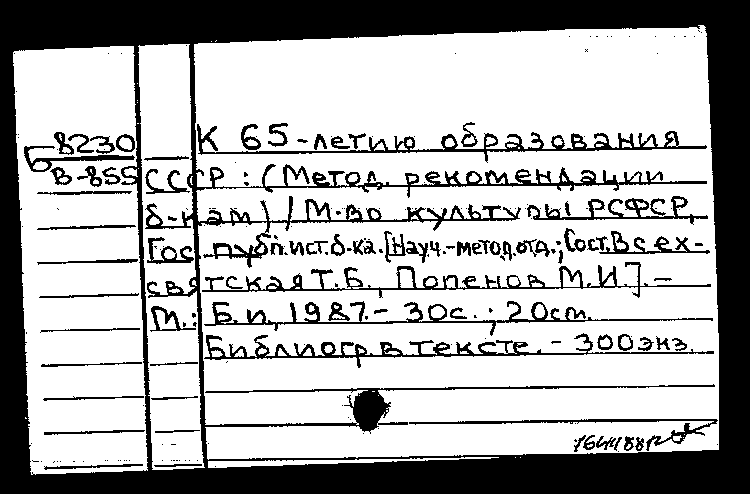 Б 8230
В-855
К 65-летию образования
СССР : (Метод. рекомендации
б-кам) / М-во культуры РСФСР,
Гос. публ. ист. б-ка. [Науч.-метод. отд.; Сост. Всех-
святская Т.Б., Попенов М.И]. –
М.: Б.и., 1987. – 30с. ; 20cm.
Библиогр. в тексте. – 300экз.